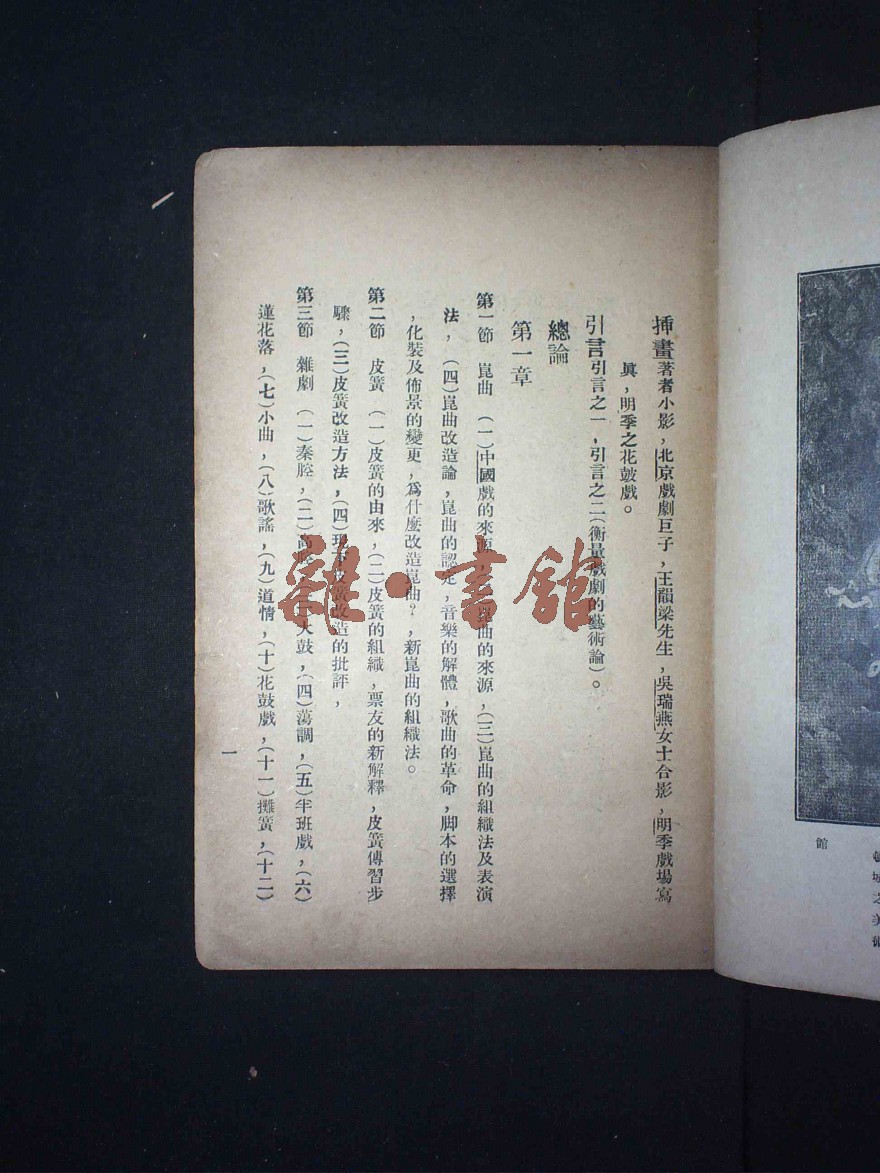 揷畫著者小影，北京戲劇巨子，王韻梁先生，吳瑞燕女士合影，明季戲場寫
眞，明季之花鼓戲。
引言引言之一，引言之二(衡量戲劇的藝術論)。
總論
第一章
第一節　崑曲　(一)中國戲的來源，崑曲的來源，(三)崑曲的組織法及表演
法，(四)崑曲改造論，崑曲的認定，音樂的解體，歌曲的革命，脚本的選擇
，化裝及佈景的變更，爲什麽改造崑曲？，新崑曲的組織法。
第二節　皮簧　(一)皮簧的由來，(二)皮簧的組織，票友的新解釋，皮簧傳習步
驟，(三)皮簧改造方法，(四)現今皮簧改造的批評，
第三節　雜劇　(一)秦腔，(二)高腔，大鼓，(四)蕩調，(五)半班戲，(六)
蓮花落，(七)小曲，(八)歌謠，(九)道情，(十)花鼓戲，(十一)攤簧，(十二)
一
雜·書館
館
之美術